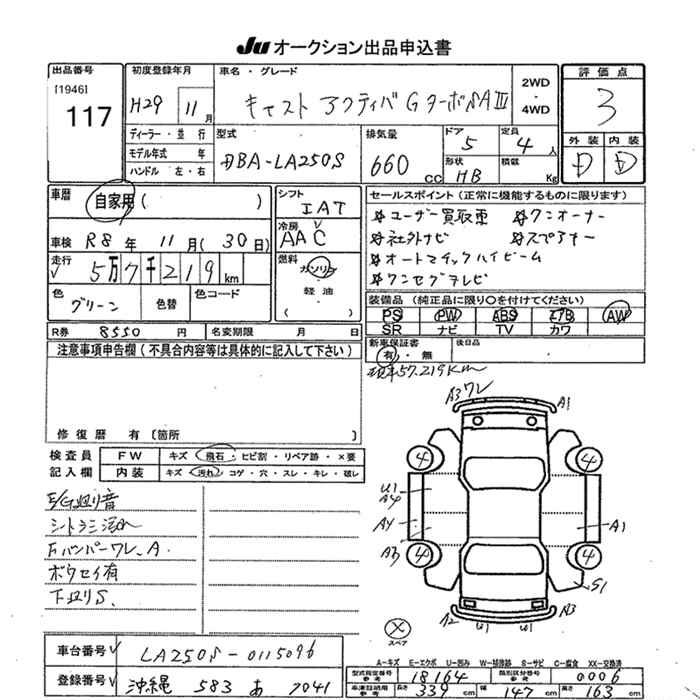 Ju オークション出品申込書
出品番号
[1946]
117
初度登録年月
H29 11 月
車名・グレード
キャスト アクティバ G ターボ SA III
2WD
・
4WD
評価点
3
外装 内装
D D
ディーラー・並行
モデル年式 年
ハンドル 左・右
型式
DBA-LA250S
排気量
660 cc
ドア
5
定員
4 人
形状
HB
積載
Kg
車歴
自家用 ( )
車検 R8 年 11 月 (30 日)
走行
5万7千219 km
色
グリーン
色替
色コード
シフト
IAT
冷房
AAC
燃料
ガソリン
・
軽油
( )
セールスポイント(正常に機能するものに限ります)
＊ユーザー買取車 ＊ワンオーナー
＊社外ナビ ＊スペアキー
＊オートマチックハイビーム
＊ワンセグテレビ
装備品 (純正品に限り○を付けてください)
PS PW ABS エアB AW
SR ナビ TV カワ
R券 8550 円 名変期限 月 日
新車保証書
有・無
後日品
現車57.219Km
注意事項申告欄(不具合内容等は具体的に記入して下さい)
修復歴 有 〔箇所 〕
検査員
記入欄
FW キズ・飛石・ヒビ割・リペア跡・×要
内装 キズ・汚れ・コゲ・穴・スレ・キレ・破レ
E/G廻り音
シートシミ汚れ
FバンパーワレA.
ボウセイ有
下廻りS.
A3 ワレ A1
4 4
U1
A4
A4 A1
A3
4 4
S1
A2 U1 U1 A3
×
スペア
車台番号 LA250S-0115096
登録番号 沖縄 583 あ 7041
A-キズ E-エクボ U-凹み W-補修跡 S-サビ C-腐食 XX-交換済
型式指定番号 参考 18164 類別区分番号 参考 0006
車両証明用 参考 長さ 339 cm 幅 147 cm 高さ 163 cm